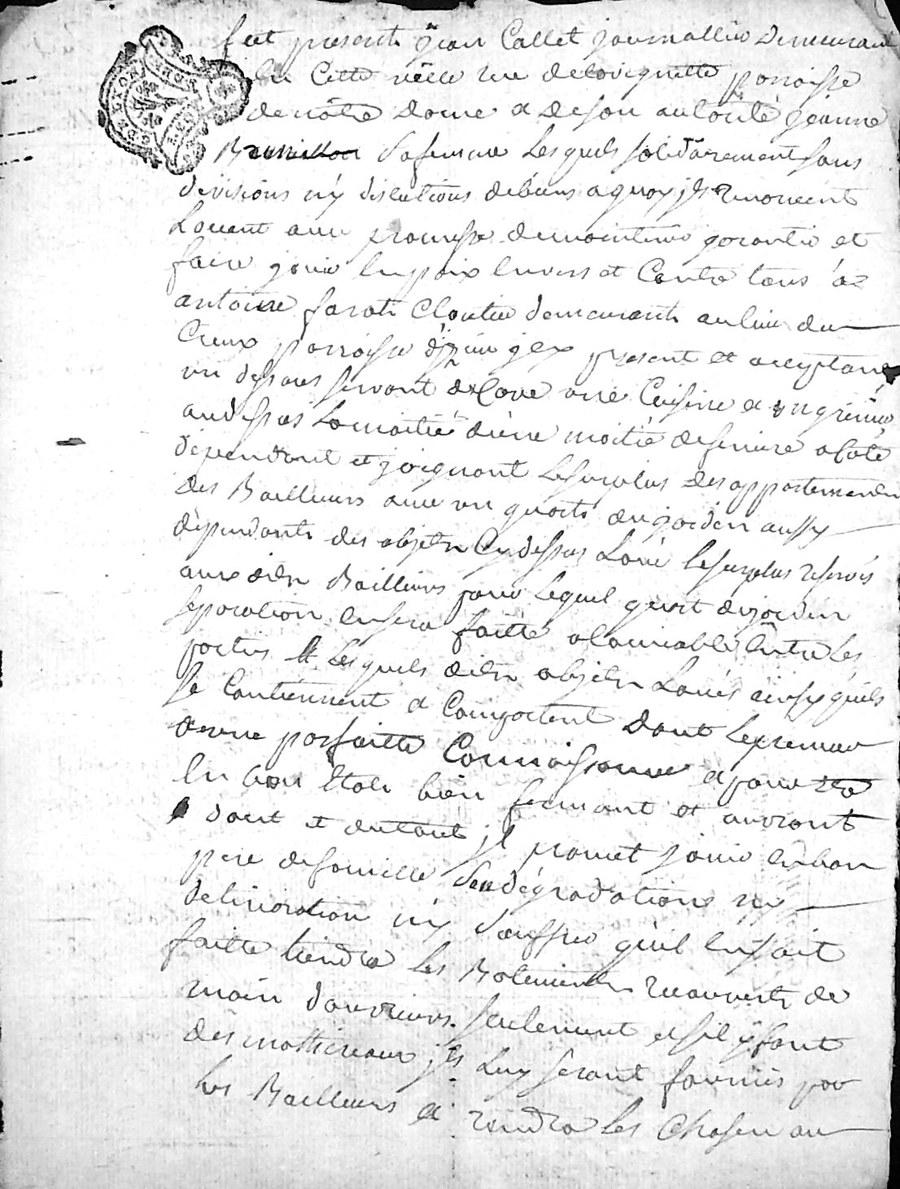 fut present jean Callet journallier demeurant
en Cette ville rue de parroisse
de nôtre dame & de son autorité jeanne
sa femme Lesquels solidairement sans
divisions n'y discutions de biens a quoy jls renoncent
Louent avec promesse de maintenir garantir et
faire jouir en paix Envers et Contre tous a
antoine farat Cloutier demeurant au lieu du
Creux parroisse present et acceptant
un dessous servant de Cave une Cuisine & un grenier
au dessus La moitié d'une moitié de a Coté
dependant et joignant Le surplus des appartements
des Bailleurs avec un quart du jardin aussy
dépendants des objets Cy dessus Loué le surplus reservé
aux dits Bailleurs pour Lequel quart du jardin
separation En sera faitte a lamiable Entre Les
parties Lesquels dits objets Loués ainsy quils
se Contiennent & Comportent Dont Le preneur
a une parfaitte Connoissance & pour
En bon Etat bien fermant et ouvrant
dout et du tout jl promet jouir En bon
pere de famille San dégradations ny
deterioration n'y souffrir quil En soit
faitte tiendra Les Batiments recouverts de
main d'ouvriers seulement et sil y faut
des matteriaux jls Luy seront fournis par
Les Bailleurs & rendra Les Choses au